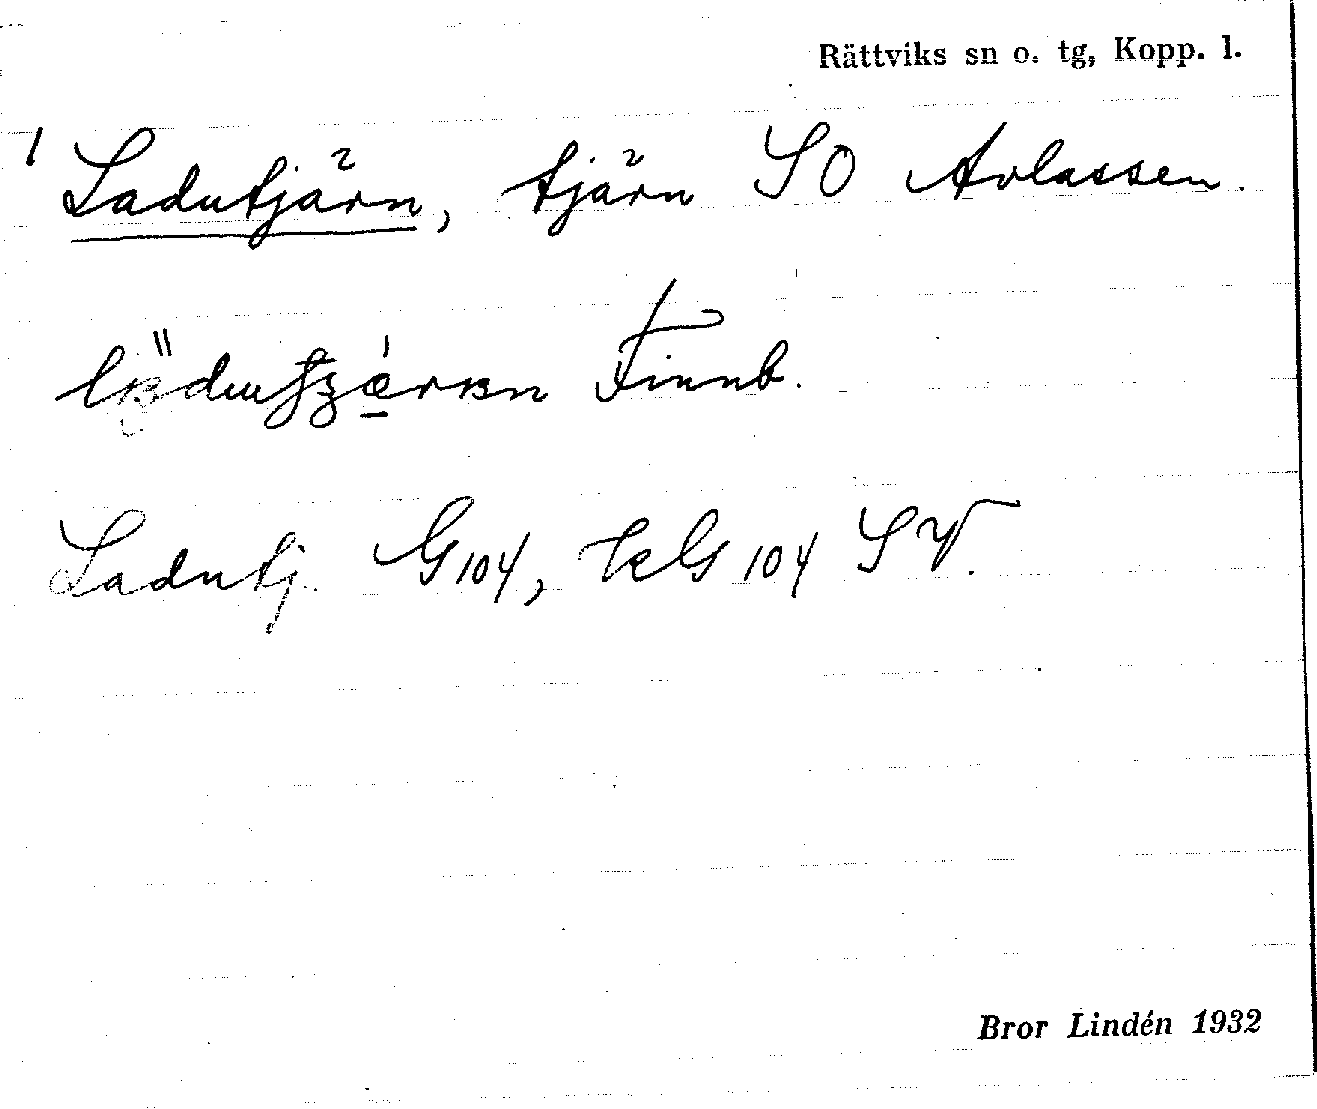 Rättviks sn o. tg, Kopp. l.
1 Ladutjärn, tjärn SO Avlassen.
Finnb.
Ladutj. G 104, Ek G 104 SV.
Bror Lindén 1932